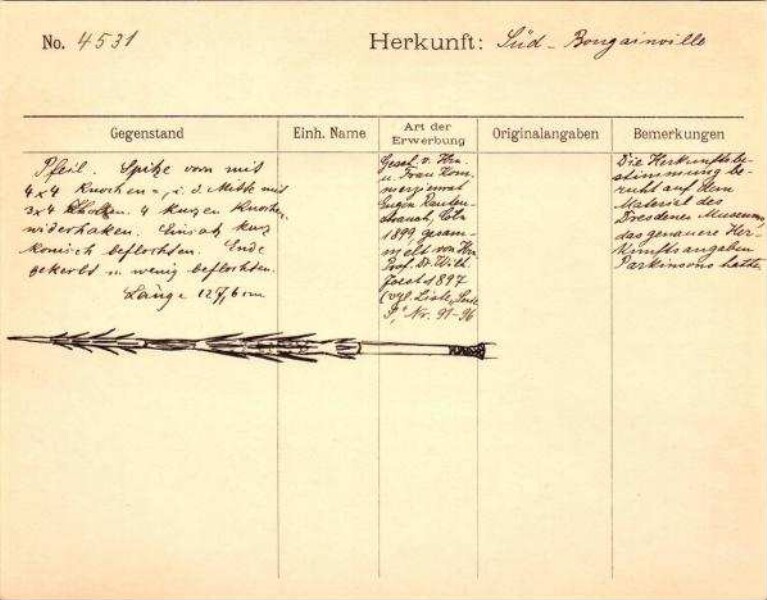 No. 4531
Herkunft: Süd-Bougainville
Gegenstand
Einh. Name
Art der Erwerbung
Originalangaben
Bemerkungen
Pfeil. Spitze vorn mit
4x4 Knochen-, i. d. Mitte mit
3x4 4 kurzen Knochen-
widerhaken. Einsatz kurz
konisch beflochten. Ende
gekerbt u. wenig beflochten.
Länge 127,6 cm
Gesch. v. Hrn.
u. Frau Kom-
merzienrat
Eugen Rauten-
strauch, Cöln
1899, gesam-
melt von Hrn.
Prof. Dr. Wilh.
Joest 1897
(vgl. Liste
Nr. 91-96
Die Herkunftsbe-
stimmung be-
ruht auf dem
Material des
Dresdener Museums,
das genauere Her-
kunftsangaben
Parkinsons hatte.